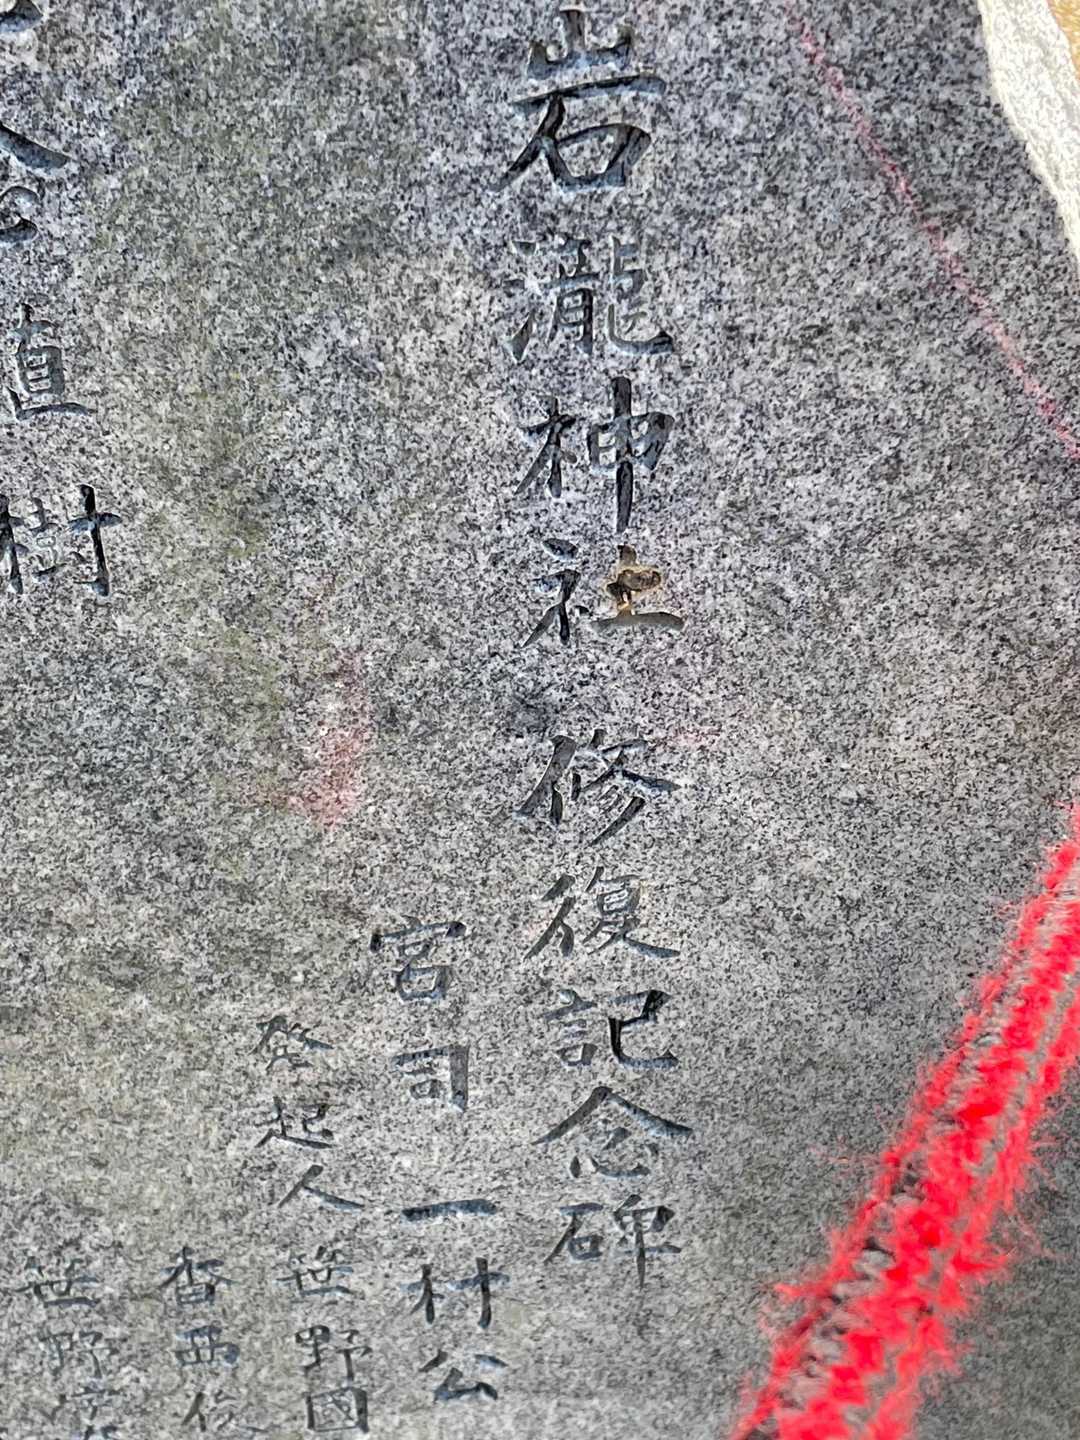 岩瀧神社修復記念碑
宮司 一村公
発起人 笹野國
香西俊
笹野
直樹